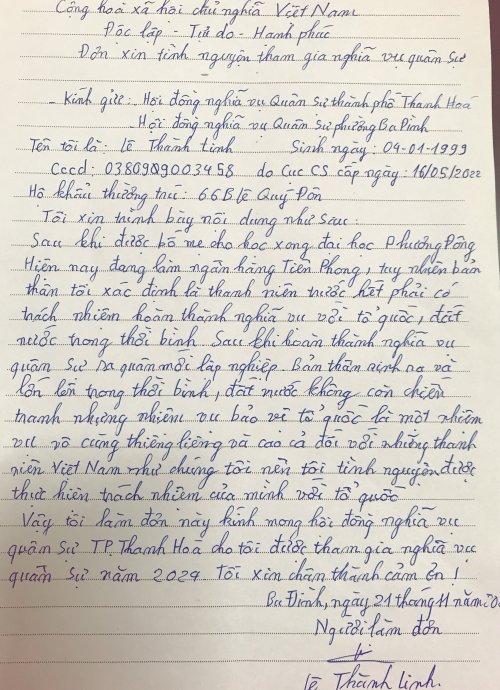 Cộng hoà xã hội chủ nghĩa Việt Nam
Độc lập - Tự do - Hạnh phúc
Đơn xin tình nguyện tham gia nghĩa vụ quân sự
- Kính gửi: Hội đồng nghĩa vụ Quân sự thành phố Thanh Hoá
- Hội đồng nghĩa vụ Quân sự phường Ba Đình
Tên tôi là: Lê Thành Linh Sinh ngày: 04-01-1999
CCCD: 038099003458 do Cục CS cấp ngày: 16/05/2022
Hộ khẩu thường trú: 66B Lê Quý Đôn
Tôi xin trình bày nội dung như sau:
Sau khi được bố mẹ cho học xong đại học Phương Đông
Hiện nay đang làm ngân hàng Tiên Phong, tuy nhiên bản
thân tôi xác định là thanh niên trước hết phải có
trách nhiệm hoàn thành nghĩa vụ với tổ quốc, đất
nước trong thời bình. Sau khi hoàn thành nghĩa vụ
quân sự ra quân mới lập nghiệp. Bản thân sinh ra và
lớn lên trong thời bình, đất nước không còn chiến
tranh nhưng nhiệm vụ bảo vệ tổ quốc là một nhiệm
vụ vô cùng thiêng liêng và cao cả đối với những thanh
niên Việt Nam như chúng tôi nên tôi tình nguyện được
thực hiện trách nhiệm của mình với tổ quốc
Vậy tôi làm đơn này kính mong hội đồng nghĩa vụ
quân sự TP. Thanh Hoá cho tôi được tham gia nghĩa vụ
quân sự năm 2024. Tôi xin chân thành cảm ơn!
Ba Đình, ngày 21 tháng 11 năm
Người làm đơn
Lê Thành Linh.